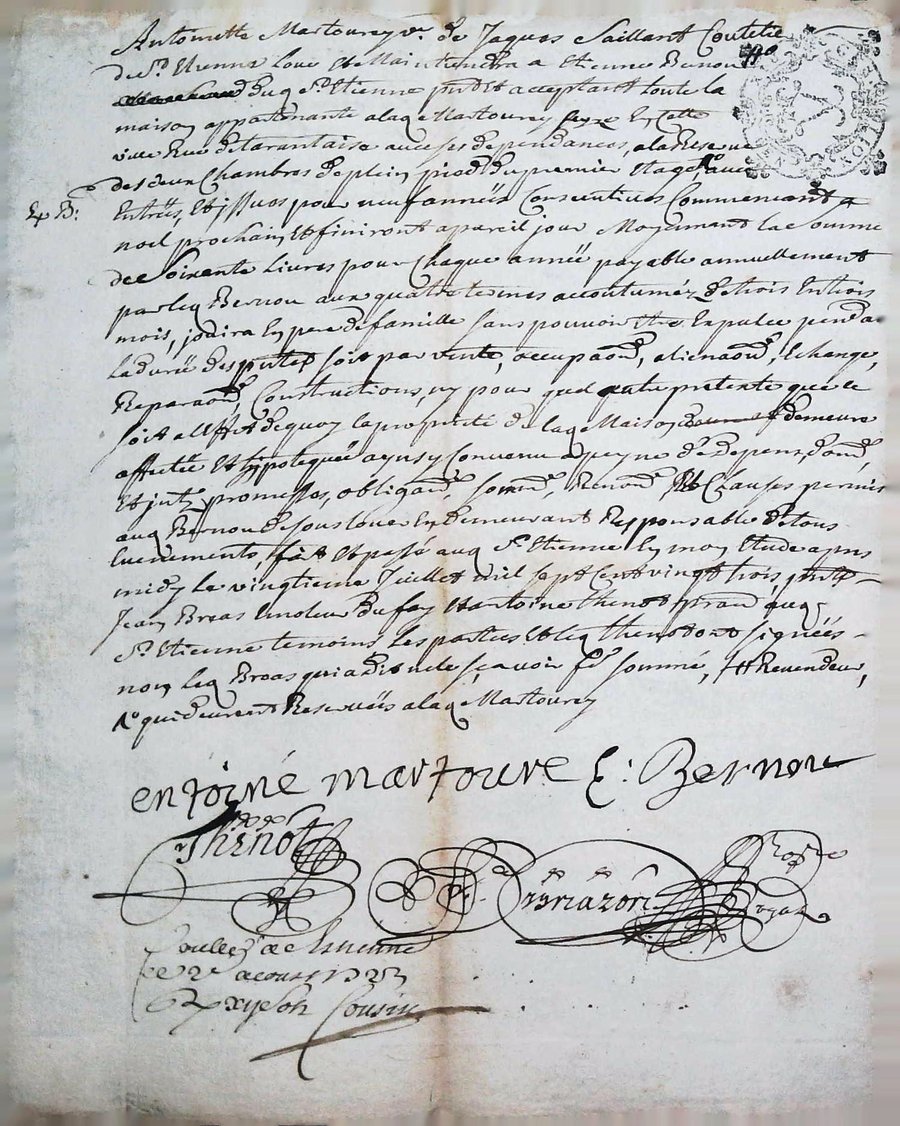 Antoinette Martourey ve. de Jaques Saillant Coutelie
de St. Etienne loue et Maintiendra a Etienne Bernou
dudq St. Etienne pnt et acceptant toute la
maison appartenante a laqe Martourey size En Cette
ville Rue de tarantaise avec ses dependances, a la Reserve
des deux Chambres de plein pied du premier Etage, avec
Entrées, Et issues pour neuf années Consecutives Commencant a
noel prochain Et finiront a pareil jour Moyennant la Somme
de Soixante livres pour Chaque année payable annuellement
par leq Bernou aux quatre termes accoutumez de trois En trois
mois, jouira En pere de famille sans pouvoir Etre Expulcé penda
la durée des pntes soit par vente, occupaon, alienaon, Echange,
Reparaon, Constructions, ny pour quel autre pretexte que ce
soit a l'Effet de quoy la proprieté de laqe Maison demeure
affectée Et hypotequée ainsy Convenu a peyne de depens, dom,
Et intz promesses, obligaon, soumon, Renonon Et Clauses permis
auq Bernou de sous louer En demeurant Responsable de tous
Evenements, fait Et passé auq St. Etienne En mon Etude apres
midy le vingtieme Juillet mil sept Cent vingt trois, pnts
Jean Breas Emoleur du fay Et antoine thenot auq
St. Etienne temoins, les parties Et leq thenot ont signées
non leq Breas qui a dit ne le sçavoir fe sommé, # Revendeur,
qui demeurent Reservées a laqe Martourey
E B:
entoiné martoure E: Bernou
thenot
Coullé a St Etienne
le 2e aoust 1723
Cousin